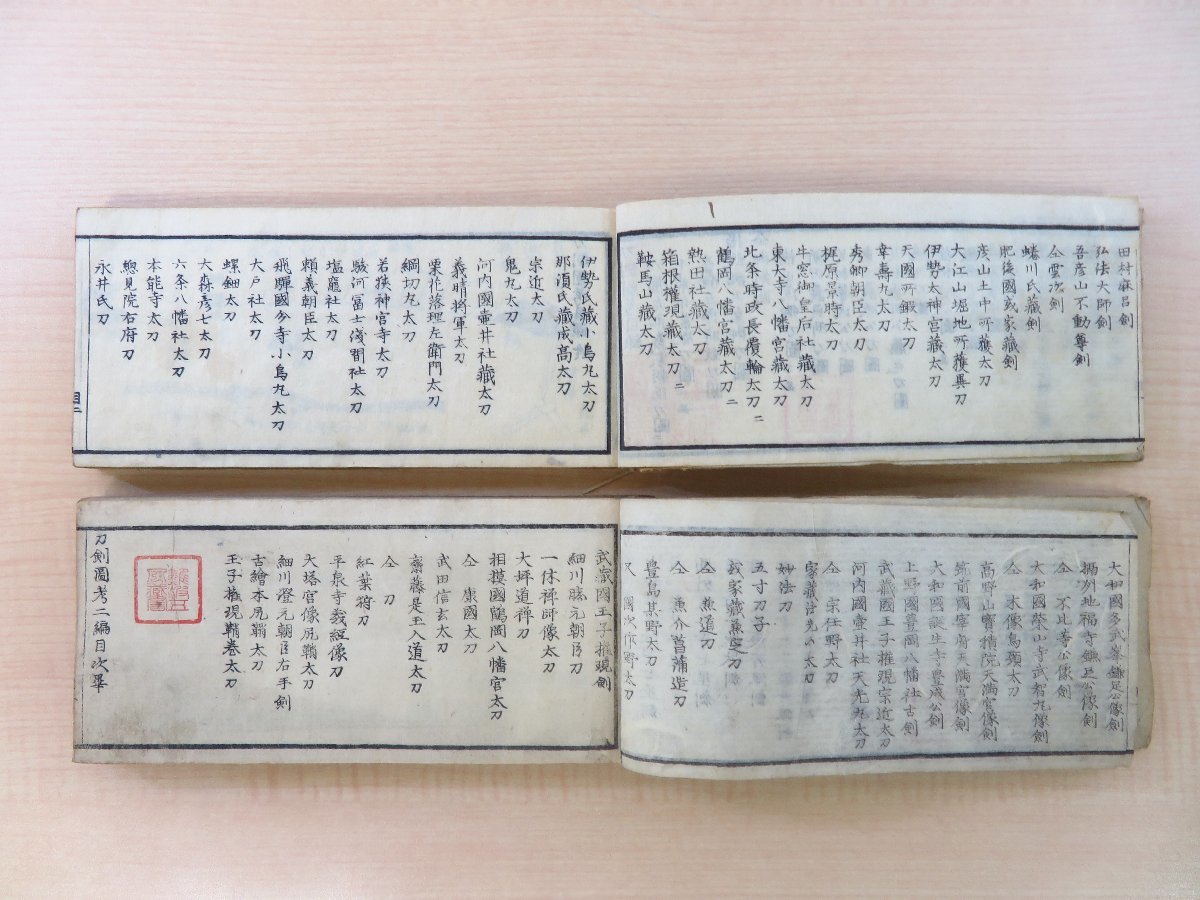 田村麻呂劍
弘法大師劍
吾彦山不動尊劍
仝雲次劍
蜷川氏藏劍
肥後國或家藏劍
彦山土中所獲太刀
大江山堀地所獲異刀
伊勢太神宮藏太刀
天國所鍛太刀
幸壽丸太刀
秀郷朝臣太刀
梶原景時太刀
牛窓御皇后社藏太刀
東大寺八幡宮藏太刀
北条時政長覆輪太刀二
鶴岡八幡宮藏太刀二
熱田社藏太刀
箱根權現藏太刀二
鞍馬山藏太刀
伊勢氏藏小烏丸太刀
那須氏藏成高太刀
宗近太刀
鬼丸太刀
河内國壷井社藏太刀
義晴將軍太刀
栗花落理左衛門太刀
綱切丸太刀
若狹神宮寺太刀
駿河冨士淺間社太刀
塩竈社太刀
頼義朝臣太刀
飛驒國分寺小烏丸太刀
大戸社太刀
螺鈿太刀
大森彦七太刀
六条八幡社太刀
本能寺太刀
總見院右府刀
永井氏刀
目二
大和國多武峯鎌足公像劍
攝州地福寺鎌足公像劍
仝 不比等公像劍
大和國榮山寺武智丸像劍
仝 木像烏頸太刀
高野山寳積院天滿宮像劍
筑前國宰府天滿宮像劍
大和國誕生寺豊成公劍
上野國豊岡八幡社古劍
武藏國王子權現宗近太刀
河内國壷井社天光丸太刀
仝 宗仕野太刀
家藏菖先の太刀
妙法刀
五寸刀子
或家藏兼定刀
仝 兼道刀
仝 兼介菖蒲造刀
豊島某野太刀
又 國次作野太刀
武藏國王子權現劍
細川勝元朝臣刀
一休禅師像太刀
大坪道禅刀
相摸國鶴岡八幡宮太刀
仝 康國太刀
武田信玄太刀
齋藤是玉入道太刀
仝 刀
紅葉狩刀
平泉寺義經像刀
大塔宮像尻鞘太刀
細川澄元朝臣右手劍
古繪本尻鞘太刀
王子權現鞘卷太刀
刀劍圖考二編目次畢